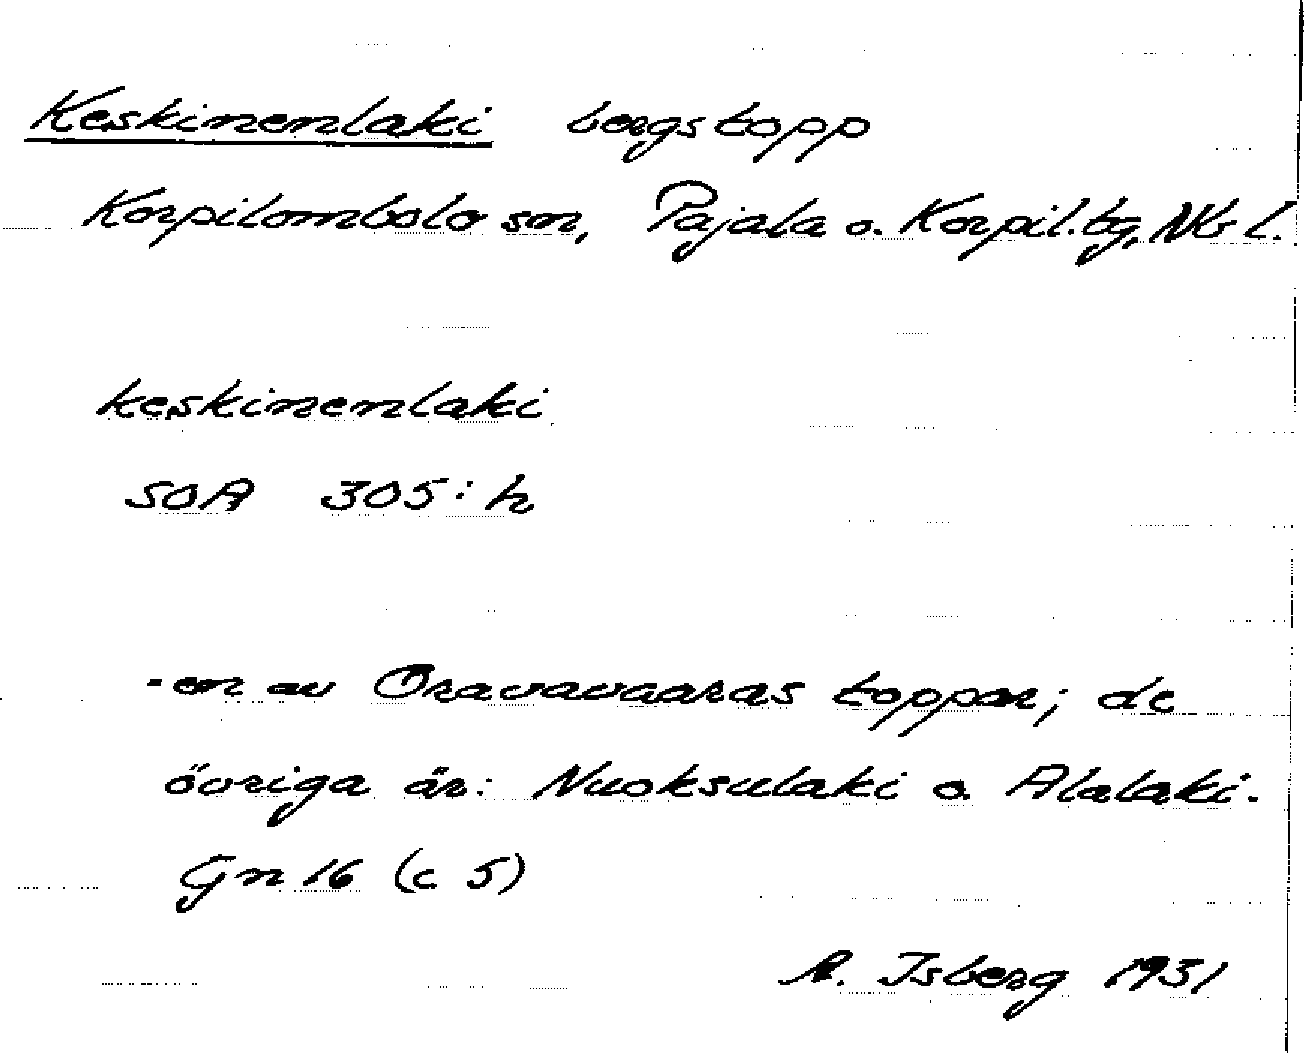 Keskinenlaki bergstopp
Korpilombolo sn, Pajala o. Korpil.tg, Nb l.
keskinenlaki
SOA 305:h
-en av Oravavaaras toppar; de
övriga är: Nuoksulaki o. Alalaki.
Gn 16 (c 5)
A. Isberg 1931